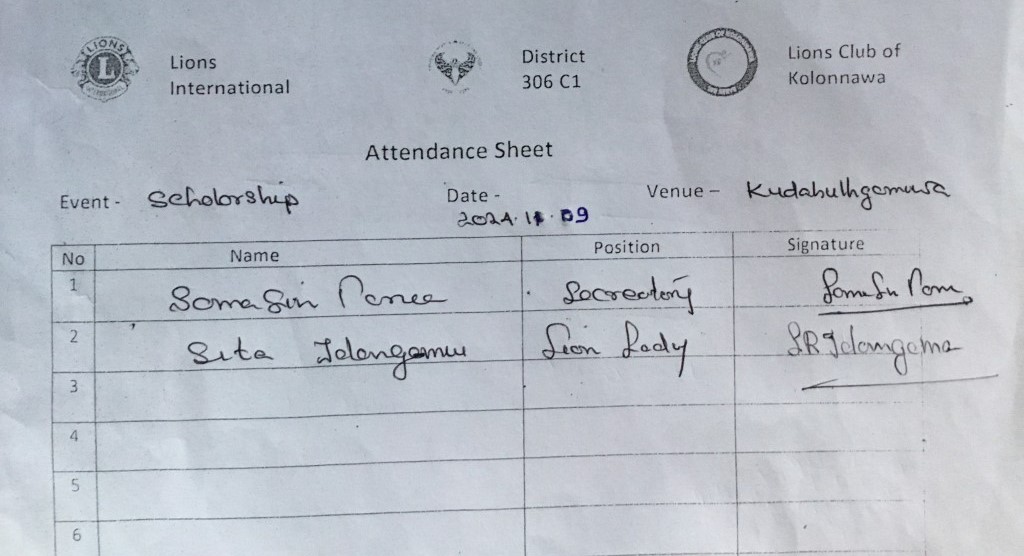 LIONS
L
INTERNATIONAL
Lions
International
District
306 C1
Lions Club of
Kolonnawa
Attendance Sheet
Event - Scholorship
Date -
2024.11.09
Venue - Kudabuthgamuwa
No Name Position Signature
1 Somasiri Secreatory
2 Sita Idangamu Lion Lady SR Idamgama
3
4
5
6